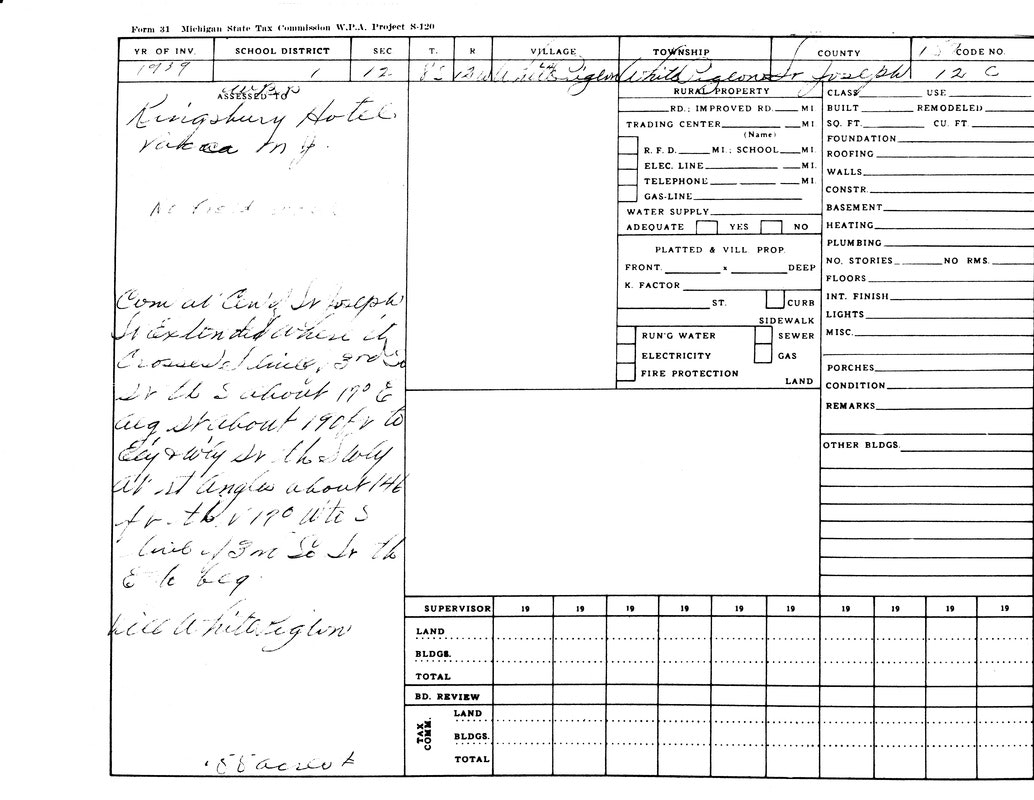 Form 31 Michigan State Tax Commission W.P.A. Project S-120
YR OF INV. SCHOOL DISTRICT SEC T. R VILLAGE TOWNSHIP COUNTY CODE NO.
1939 1 12 8S White Pigeon White Pigeon St Joseph 12 C
ASSESSED TO
Kingsbury Hotel
Com at St Joseph
St Extended where it
Crosses S line, 3rd So
St th S about 19° E
alg st about 190 ft to
Ely & Wly St th SWly
at st angles about 146
ft th 19° W to S
line of 3rd So St th
E to beg
Vill White Pigeon
.88 acres
RURAL PROPERTY
RD.; IMPROVED RD. MI
TRADING CENTER MI
(Name)
R. F. D. MI.; SCHOOL MI.
ELEC. LINE MI.
TELEPHONE MI.
GAS-LINE
WATER SUPPLY
ADEQUATE YES NO
PLATTED & VILL PROP.
FRONT. x DEEP
K. FACTOR
ST. CURB
SIDEWALK
RUN'G WATER SEWER
ELECTRICITY GAS
FIRE PROTECTION
LAND
CLASS USE
BUILT REMODELED
SQ. FT. CU. FT.
FOUNDATION
ROOFING
WALLS
CONSTR.
BASEMENT
HEATING
PLUMBING
NO. STORIES NO RMS.
FLOORS
INT. FINISH
LIGHTS
MISC.
PORCHES
CONDITION
REMARKS
OTHER BLDGS.
SUPERVISOR 19 19 19 19 19 19 19 19 19 19
LAND
BLDGS.
TOTAL
BD. REVIEW
TAX COMM.
LAND
BLDGS.
TOTAL